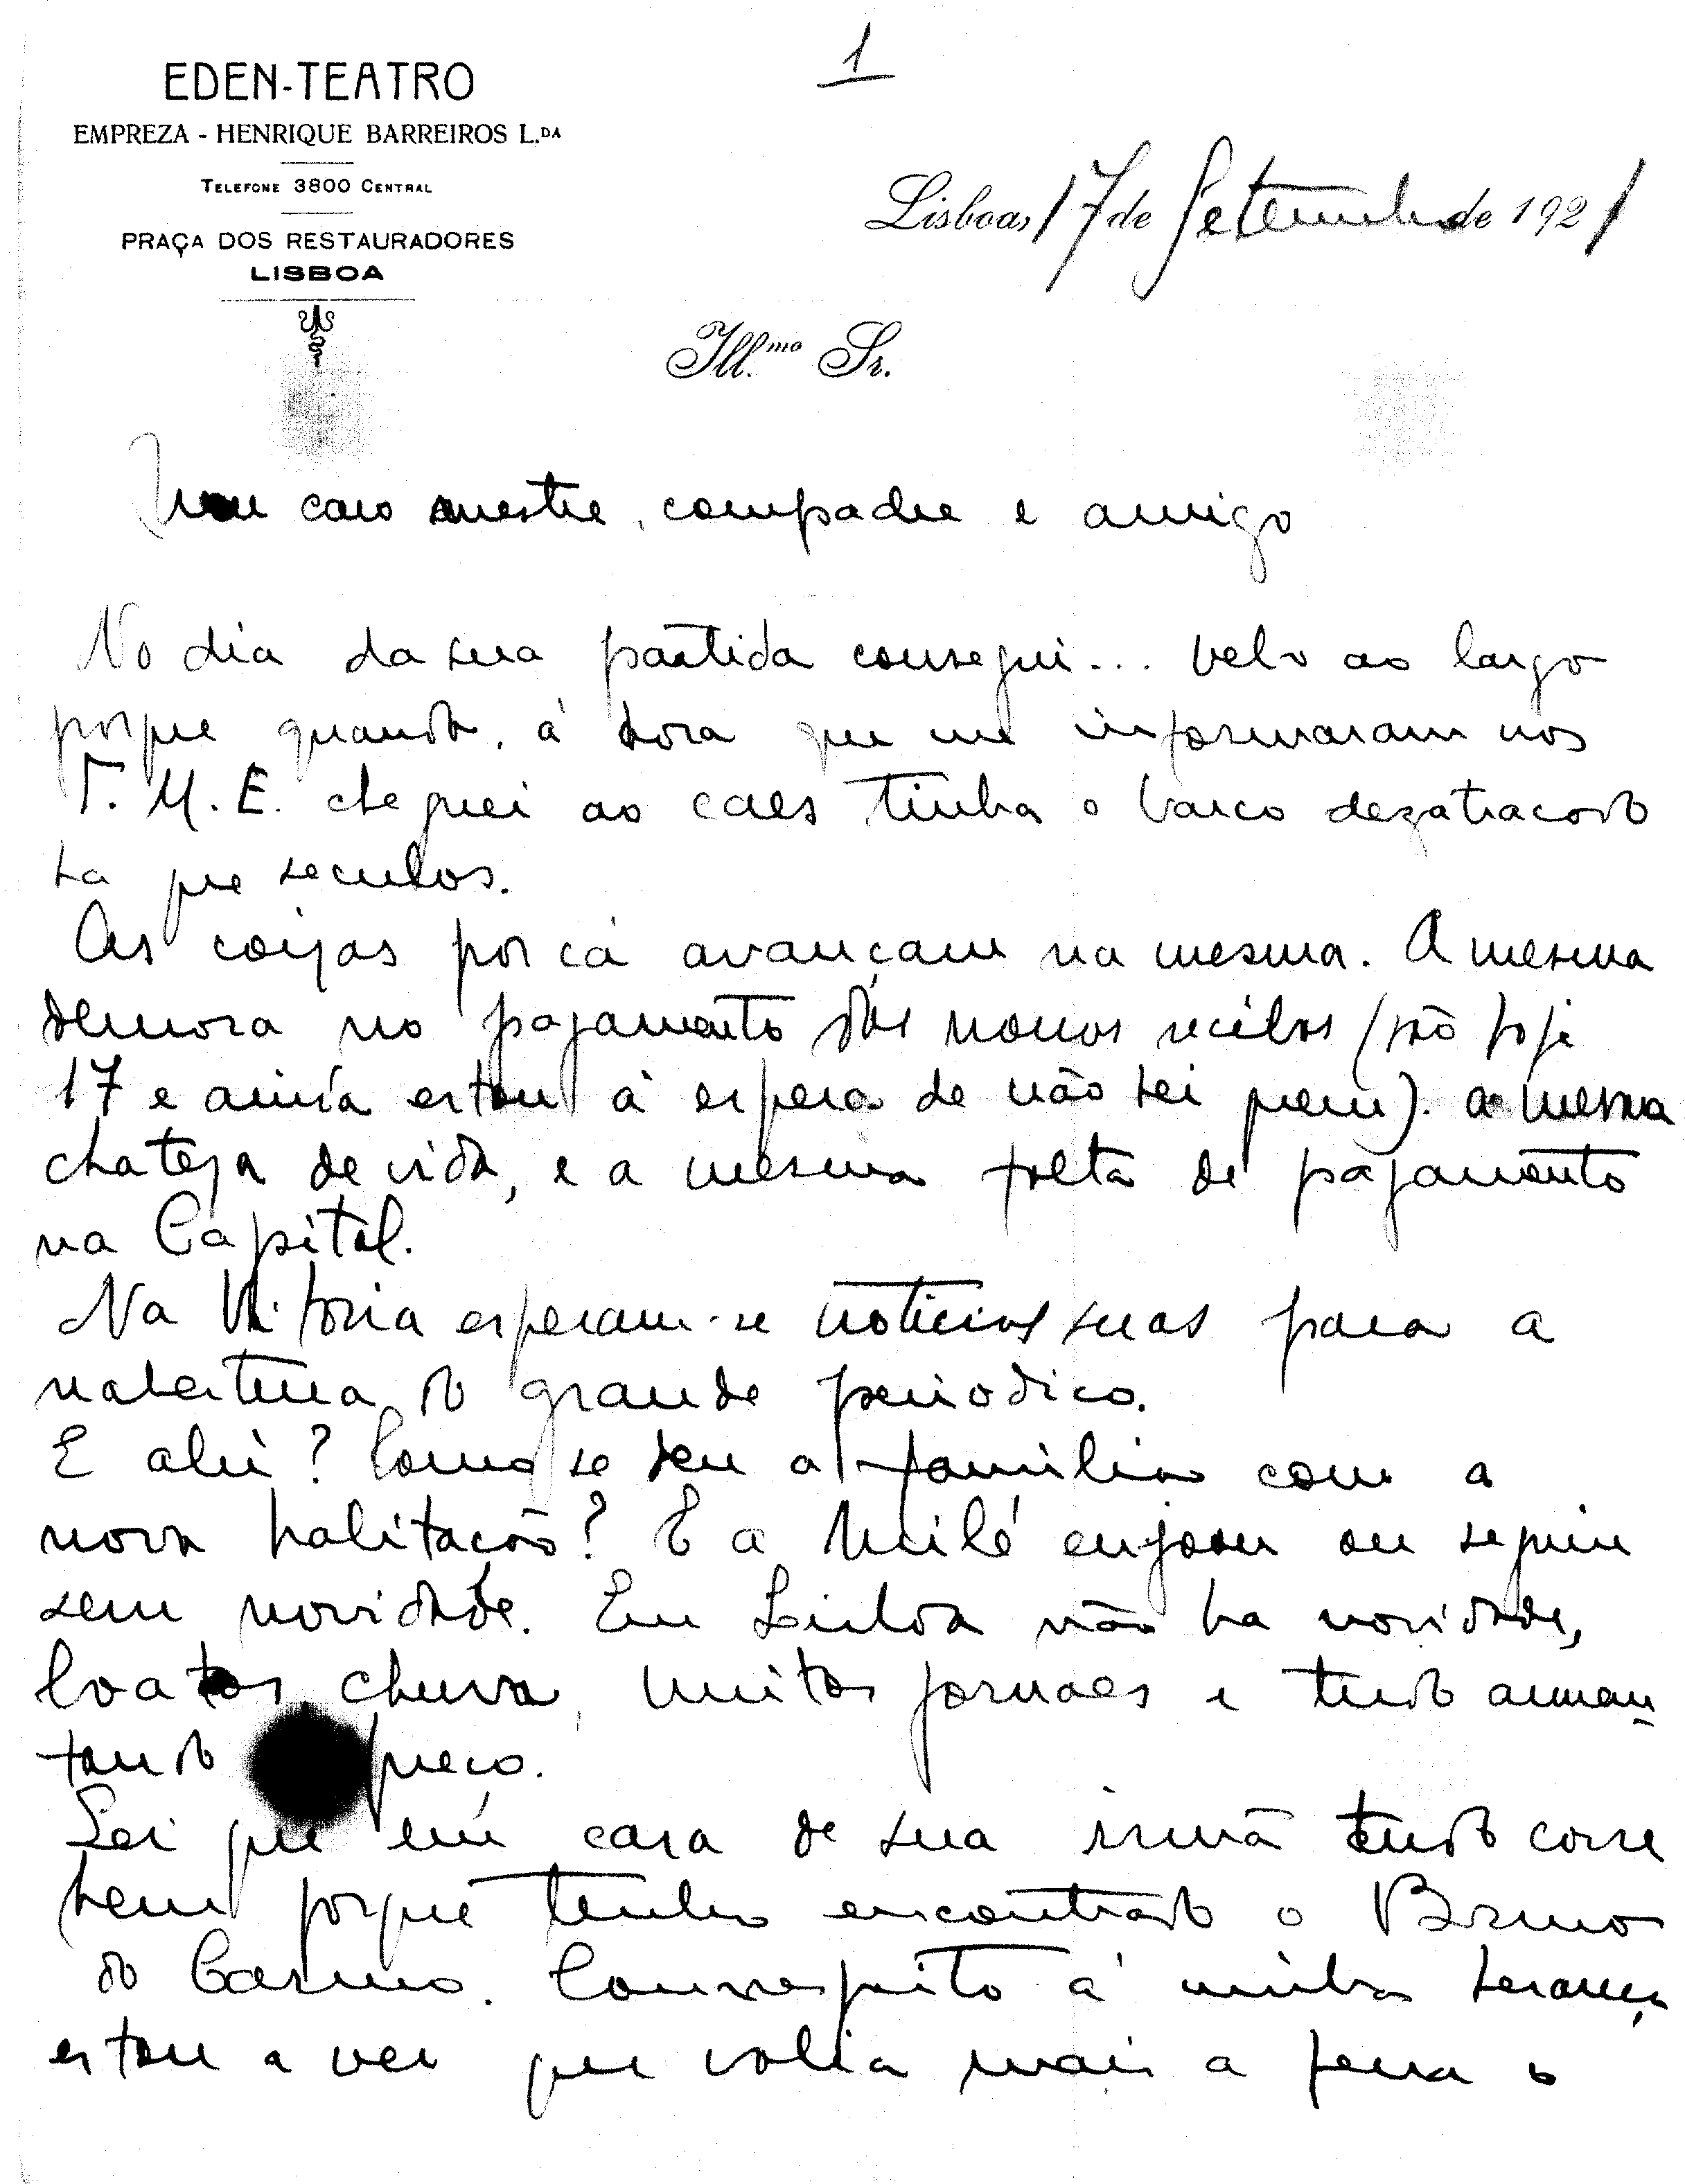 1
EDEN-TEATRO
EMPREZA - HENRIQUE BARREIROS L.DA
TELEFONE 3800 CENTRAL
PRAÇA DOS RESTAURADORES
LISBOA
Lisboa, 17 de Setembro de 1921
Ill.mo Sr.
Meu caro mestre, compadre e amigo
No dia da sua partida consegui... velo ao largo
porque quando, á hora que me informaram nos
T. M. E. cheguei ao caes tinha o barco dezatracado
ha que seculos.
As coizas por cá avançam na mesma. A mesma
demora no pagamento dos nossos recibos (são hoje
17 e ainda estou á espera de não sei quem). a mesma
chateza de vida, e a mesma falta de pagamento
na Capital.
Na Vitoria esperam-se noticias suas para a
nabertura do grande periodico.
E ahi? Como se deu a familia com a
nova habitação? E a Milé enjoou ou seguiu
sem novidade. Em Lisboa não ha novidade,
boatos chuva, muitos jornaes e tudo aumen
tando preço.
Sei que em casa de sua irmã tudo corre
bem porque tenho encontrado o Bruno
do Carmo. Com respeito á minha herança
estou a ver que valia mais a pena o